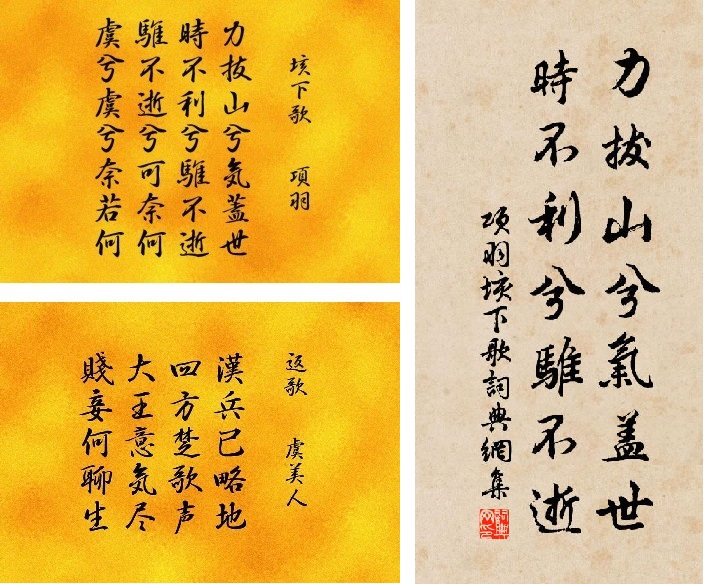 垓下歌 項羽
力拔山兮氣蓋世
時不利兮騅不逝
騅不逝兮可奈何
虞兮虞兮奈若何
返歌 虞美人
漢兵已略地
四方楚歌声
大王意气尽
賤妾何聊生
力拔山兮氣蓋世
時不利兮騅不逝
項羽垓下歌詞典網集